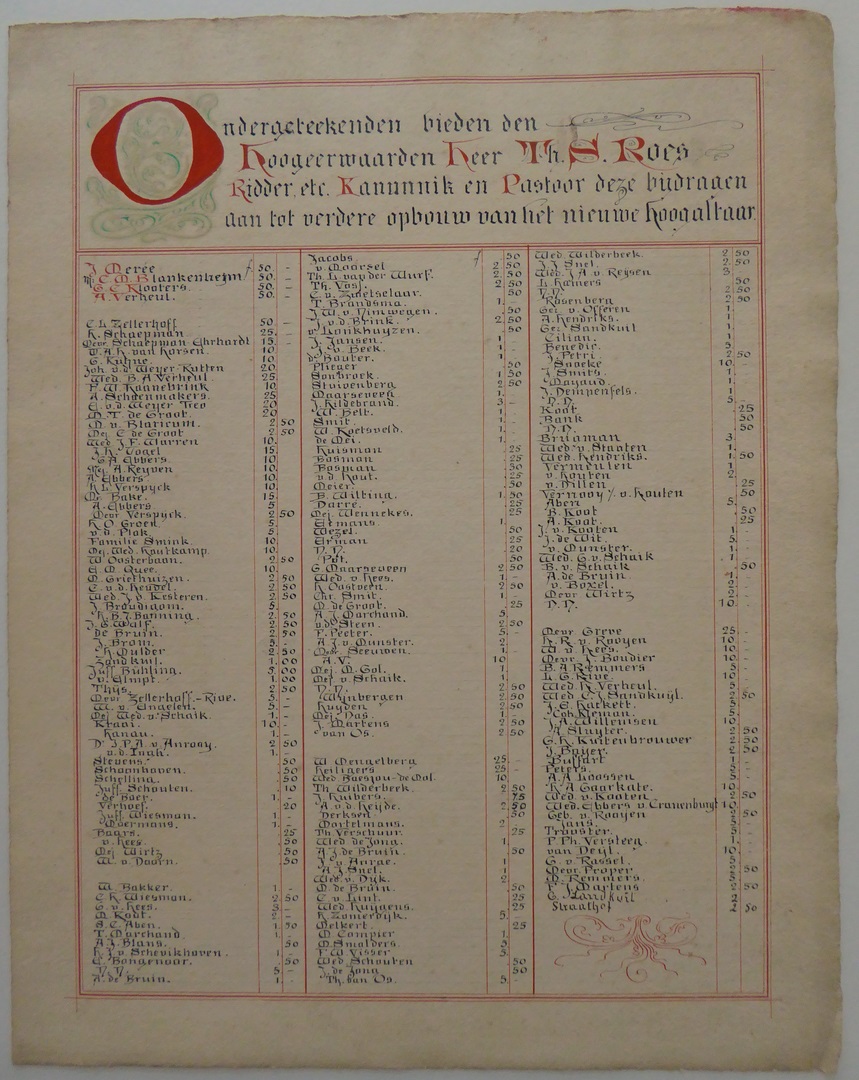 Ondergeteekenden bieden den
Hoogeerwaarden Heer Th. S. Roes
Ridder, etc. Kanunnik en Pastoor deze bijdragen
aan tot verdere opbouw van het nieuwe hoogaltaar.
J. Merée ƒ 50 -
C. M. Blankenheijm 50. -
G. C. Klooters. 50. -
A. Verheul. 50. -
C. L. Zellerhoff 50 -
K. Schaepman 25. -
Mevr. Schaepman Ehrhardt 15. -
W. A. H. van Horsen. 10
G. Kuhne. 10.
Joh. v. d. Weyer Rutten 20.
Wed. B. A. Verheul. 25
F. W. Kannebrink 10.
A. Schoenmakers. 25
M. T. de Groot. 20
M. v. Blaricum. 2 50
Mej. C. de Groot 2 50
Wed. J. F. Warren 10.
J. H. Vogel 15.
G. A. Ebbers. 10.
Mej. A. Reyven 10
A. Ebbers 10
H. L. Verspyck 10
Mr. Bake. 15
A. Ebbers 5
Mevr. Verspyck. 2 50
H. O. Groen. 5
v. d. Plok. 5
Familie Smink. 10
Mej. Wed. Houtkamp. 10.
W. Oosterbaan. 2 50
G. M. Quee. 10.
M. Griethuizen. 2 50
C. v. d. Heuvel. 2 50
Wed. J. d. Kesteren. 2 50
J. Broudigom. 5
H. B. J. Banning. 2 50
J. G. Wolf. 2 50
de Bruin. 2 50
J. Brom. 5
H. Mulder 2 50
Zandkuil. 1.00
Juff. Bühling. 5 00
v. Glimpt. 1 00
Thijs. 2 50
Mevr. Zellerhoff-Rive. 5 -
W. v. Ongelen. 5 -
Mej. Wed. v. Schaik. 1 -
Kraai. 10. -
Hanau. 1. -
Dr. J. P. A. v. Anrooy 2 50
1. -
Stevens. 50
Schoonhoven. 50
Schelling. 50
Juff. Schouten. 10
de Boer. 1. -
Verhoef. 20
Juff. Wiesman. 1. -
Moermans. 1. -
Baars. 25
v. Hees. 50
Mej. Wirtz 50
W. v. Doorn. 50
W. Bakker. 1. -
C. H. Wiesman. 2 50
G. v. Hees. 3 -
M. Kodt. 2 -
S. C. Aben. 1 50
T. Marchand. 1. -
A. J. Blans. 50
H. J. v. Schevikhoven. 1. -
C. Bongenaar. 50
N. N. 5 -
A. de Bruin. 1. -
Jacobs. ƒ 50
v. Moorsel 2 50
Th. L. van der Wurf. 2 50
Th. Vosf. 2 50
C. v. Zwetselaar. 50
T. Brandsma. 1. -
J. W. v. Nimwegen. 50
J. v. d. Brink. 2 50
v. Lonkhuyzen. 50
J. Jansen. 1
J. v. Beek. 1
de Bouter. 1
Plieger 50
Sonbroek. 1 50
Stuivenberg 2 50
Maarseveen 1.
J. Hildebrand. 3
W. Belt. 1
Smit. 1
W. Koetsveld. 1
de Mei. 1
Huisman 25
Bosman 25
Bosman 50
v. d. Hout. 25
Meier. 50
B. Wilting. 1 50
Darré. 25
Mej. Wennekes. 25
Ermans. 1
Wezel. 50
Erman 25
N. N. 20
Pot. 50
G. Maarseveen 2 50
Wed. v. Hees. 1 -
H. Oostveen. 2 50
Chr. Smit. 1 -
M. de Groot. 25
A. J. Marchand. 5.
v. d. Steen. 2 50
F. Peeter. 5 -
A. J. v. Munster. 2
Mevr. Seeuwen. 1
A. V. 10
Mej. M. Gol. 1
Mej. v. Schaik. 1
N. N. 2 50
Wijnbergen 2 50
Huyden 2 50
Mej. Das. 1 -
J. Martens 2 50
van Os. 2 50
W. Mengelberg 25 -
Heiligers 25 -
Wed. Boesjou-de Mol. 10
Th. Wilderbeek. 2 50
J. Huibers. 75
A. v. d. Heijde. 2 50
Derksen. 50
Mortelmans. 2
Th. Verschuur. 25
Wed. de Jong. 1.
A. J. de Bruin. 50
J. v. Anrae. 1
A. J. Snel. 1
Wed. v. Dijk. 2
M. de Bruin. 50
C. v. Lint. 25
Wed. Huijgens. 25
H. Zomerdijk. 5
Melkert. 25
M. Compier 1.
M. Smolders. 5
F. W. Visser 5
Wed. Schouten 50
J. de Jong 50
Th. van Os. 5 -
Wed. Wilderbeek. 2 50
J. J. Snel. 2 50
Wed. J. A. v. Reijsen 3
L. Hamers 50
N. N. 2 50
Rosenberg 2 50
Gez. v. Offeren 1
A. Hendriks. 1
Gez. Sandkuil 1
Cilian. 1
Benedic. 5
J. Petri. 2 50
Snoeke 10
J. Smits. 1
Mayaud. 1
J. Hempenfels. 1
N. N. 5
Koot 25
Bank 50
N. N. 50
Brugman 3
Wed. v. Staaten 1
Wed. Hendriks. 1 50
Vermeulen 1
v. Houten 2
v. Dillen 25
Vernooy /. v. Houten 50
Aben 5
B. Koot 50
A. Koot. 25
J. v. Kooten 1
J. de Wit. 5
v. Munster. 1
Wed. G. v. Schaik 1
B. v. Schaik 50
A. de Bruin 1 -
v. Boxel. 2 -
Mevr. Wirtz 2 -
N. N. 10 -
Mevr. Greve 25 -
H. R. v. Rooyen 10 -
W. v. Hees. 10 -
Mevr. J. Boudier 10 -
B. A. Remmers 5 -
L. G. Rive. 10 -
Wed. H. Verheul. 5 -
Wed. C. J. Sandkuijl. 2 50
J. S. Hackett. 5
Joh. Kleman. 5 -
J. A. Willemsen 10 -
A. Sluyter. 2 50
G. H. Kuitenbrouwer 2 50
J. Bayer. 2 50
Buffart 1 -
Peters. 2
A. A. Goossen 5 -
H. A. Gaarkate. 10 -
Wed. v. Kooten 2 50
Wed. Ebbers v. Cranenburgt 10
Geb. v. Rooijen 2 50
Jans. 5 -
Trooster. 5 -
P. Ph. Versteeg 1 -
van Deijl. 10 -
G. v. Rassel. 5
Mevr. Proper 2 50
M. Remmers. 5
F. J. Martens 2 50
G. Zandkuil 1
Straathof 2 50